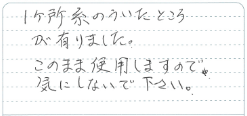 1ヶ所糸のういたところ
が有りました。
このまま使用しますので、
気にしないで下さい。